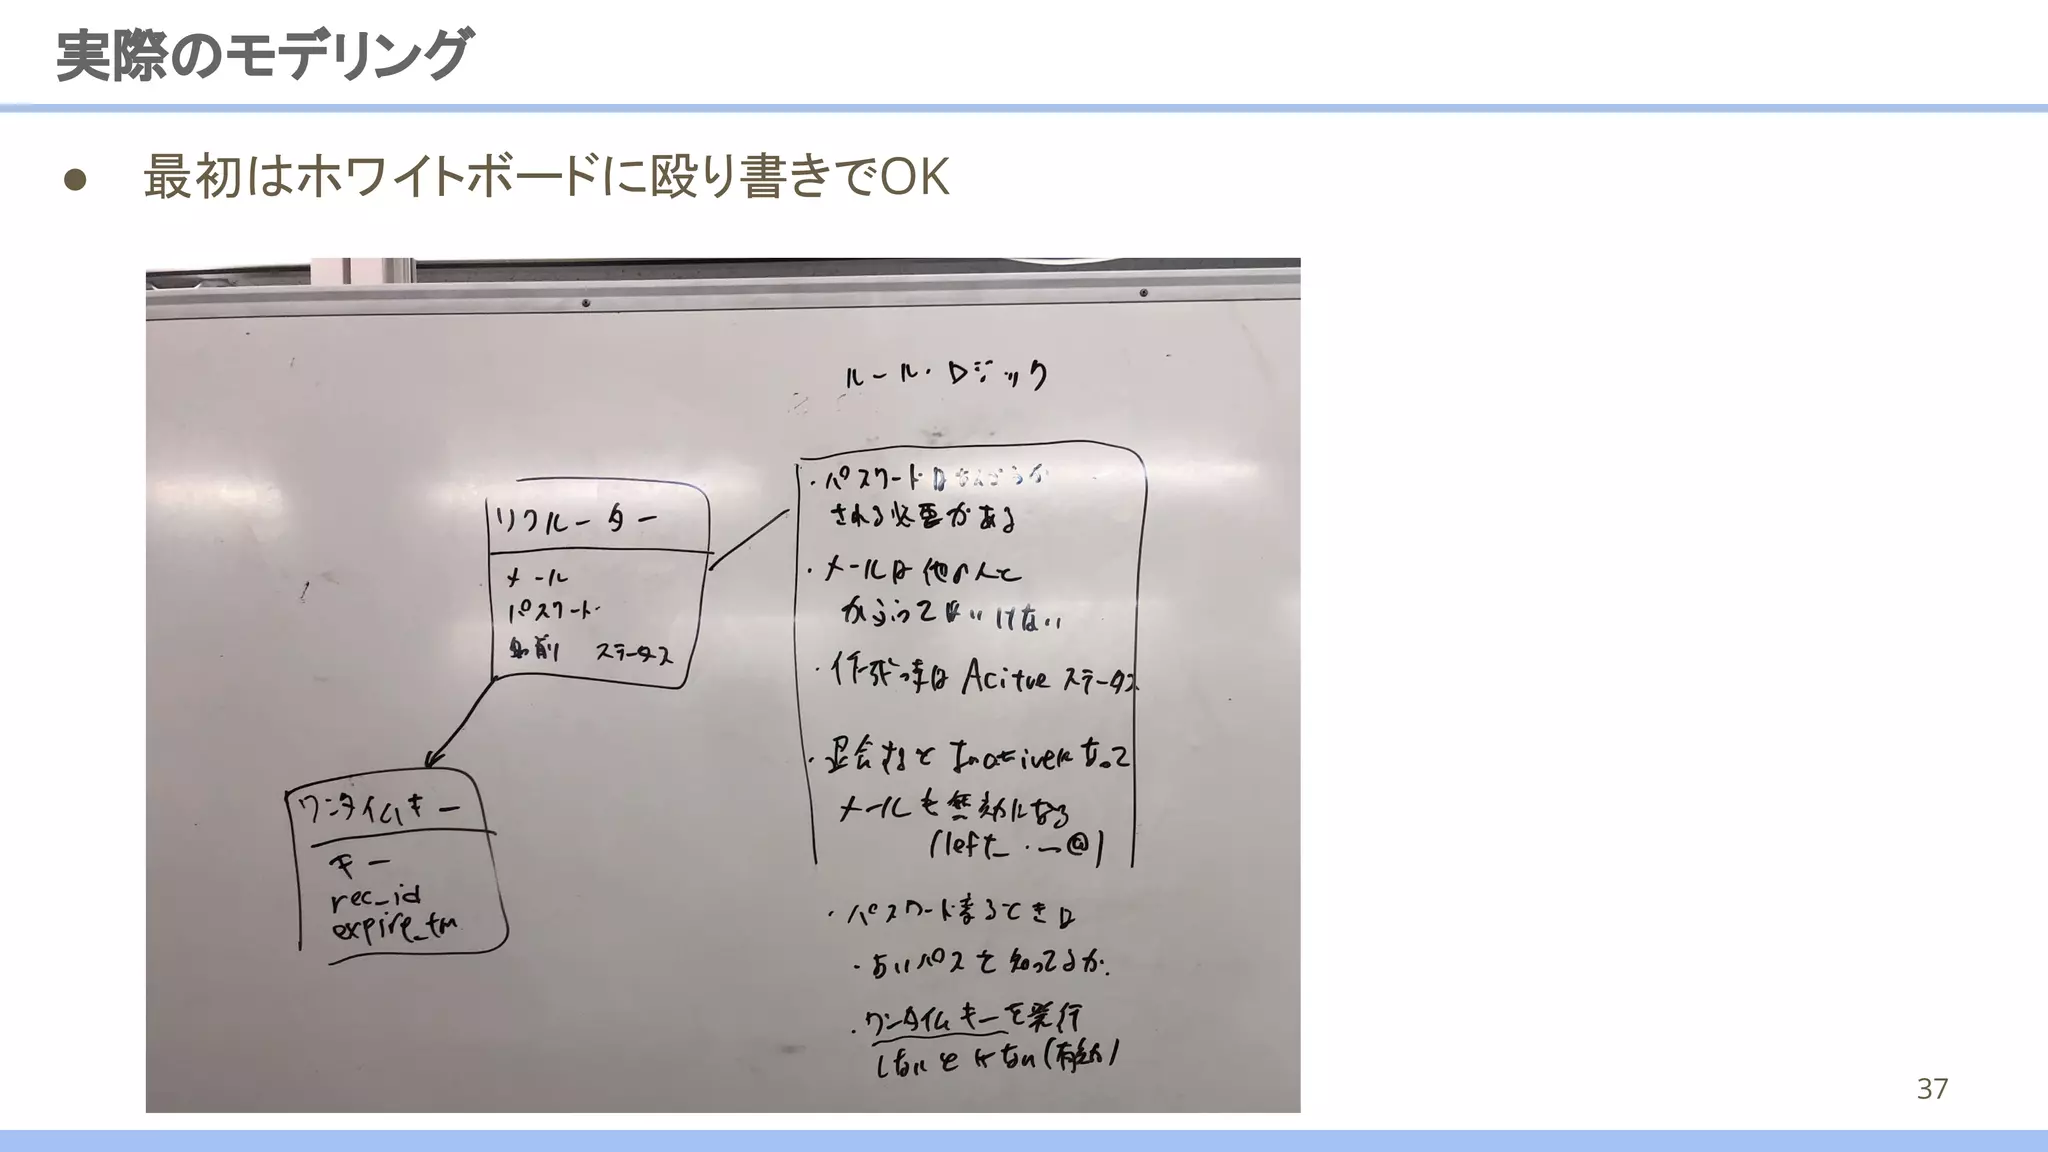 実際のモデリング
● 最初はホワイトボードに殴り書きでOK
ルール・ロジック
リクルーター
メール
パスワード
名前 ステータス
ワンタイムキー
キー
rec_id
expire_tm
・パスワードは
される必要がある
・メールは他の人と
かぶってはいけない
・作成時は Acitve ステータス
・退会すると Inactiveになって
メールも無効になる
(left_ . 〜@)
・パスワード
・パスを知ってるか.
・ワンタイムキーを発行
しないといけない(有効)
37